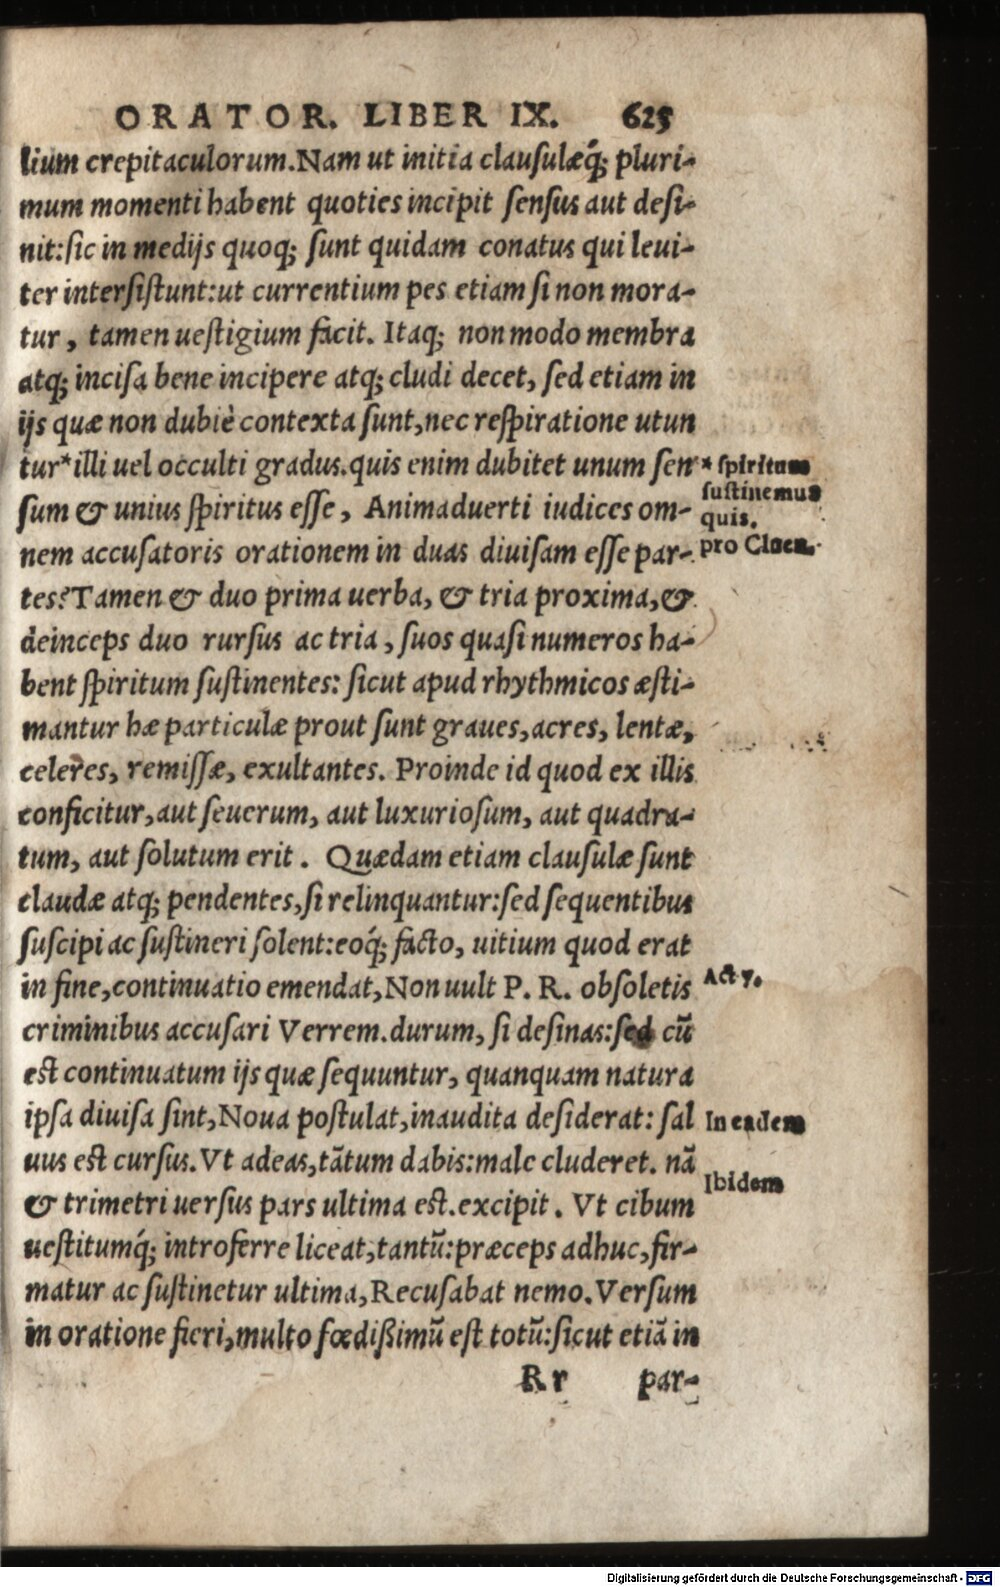 ORATOR. LIBER IX. 625
lium crepitaculorum. Nam ut initia clauſulæq́; pluri-
mum momenti habent quoties incipit ſenſus aut deſi-
nit: ſic in medijs quoq; ſunt quidam conatus qui leui-
ter interſiſtunt: ut currentium pes etiam ſi non mora-
tur, tamen ueſtigium facit. Itaq; non modo membra
atq; inciſa bene incipere atq; cludi decet, ſed etiam in
ijs quæ non dubiè contexta ſunt, nec reſpiratione utun
tur* illi uel occulti gradus. quis enim dubitet unum ſen
* ſpiritum
ſuſtinemus
quis.
ſum & unius ſpiritus eſſe, Animaduerti iudices om-
nem accuſatoris orationem in duas diuiſam eſſe par-
pro Cluen.
tes? Tamen & duo prima uerba, & tria proxima, &
deinceps duo rurſus ac tria, ſuos quaſi numeros ha-
bent ſpiritum ſuſtinentes: ſicut apud rhythmicos æſti-
mantur hæ particulæ prout ſunt graues, acres, lentæ,
celeres, remiſſæ, exultantes. Proinde id quod ex illis
conficitur, aut ſeuerum, aut luxurioſum, aut quadra-
tum, aut ſolutum erit. Quædam etiam clauſulæ ſunt
claudæ atq; pendentes, ſi relinquantur: ſed ſequentibus
ſuſcipi ac ſuſtineri ſolent: eoq́; facto, uitium quod erat
in fine, continuatio emendat, Non uult P. R. obſoletis
Act 7.
criminibus accuſari Verrem. durum, ſi deſinas: ſed cũ
eſt continuatum ijs quæ ſequuntur, quanquam natura
ipſa diuiſa ſint, Noua poſtulat, inaudita deſiderat: ſal
In eadem
uus eſt curſus. Vt adeas, tãtum dabis: male cluderet. nã
Ibidem
& trimetri uerſus pars ultima eſt. excipit. Vt cibum
ueſtitumq́; introferre liceat, tantũ: præceps adhuc, fir-
matur ac ſuſtinetur ultima, Recuſabat nemo. Verſum
in oratione fieri, multo fœdißimũ eſt totũ: ſicut etiã in
Rr par-
Digitalisierung gefördert durch die Deutsche Forschungsgemeinschaft - DFG